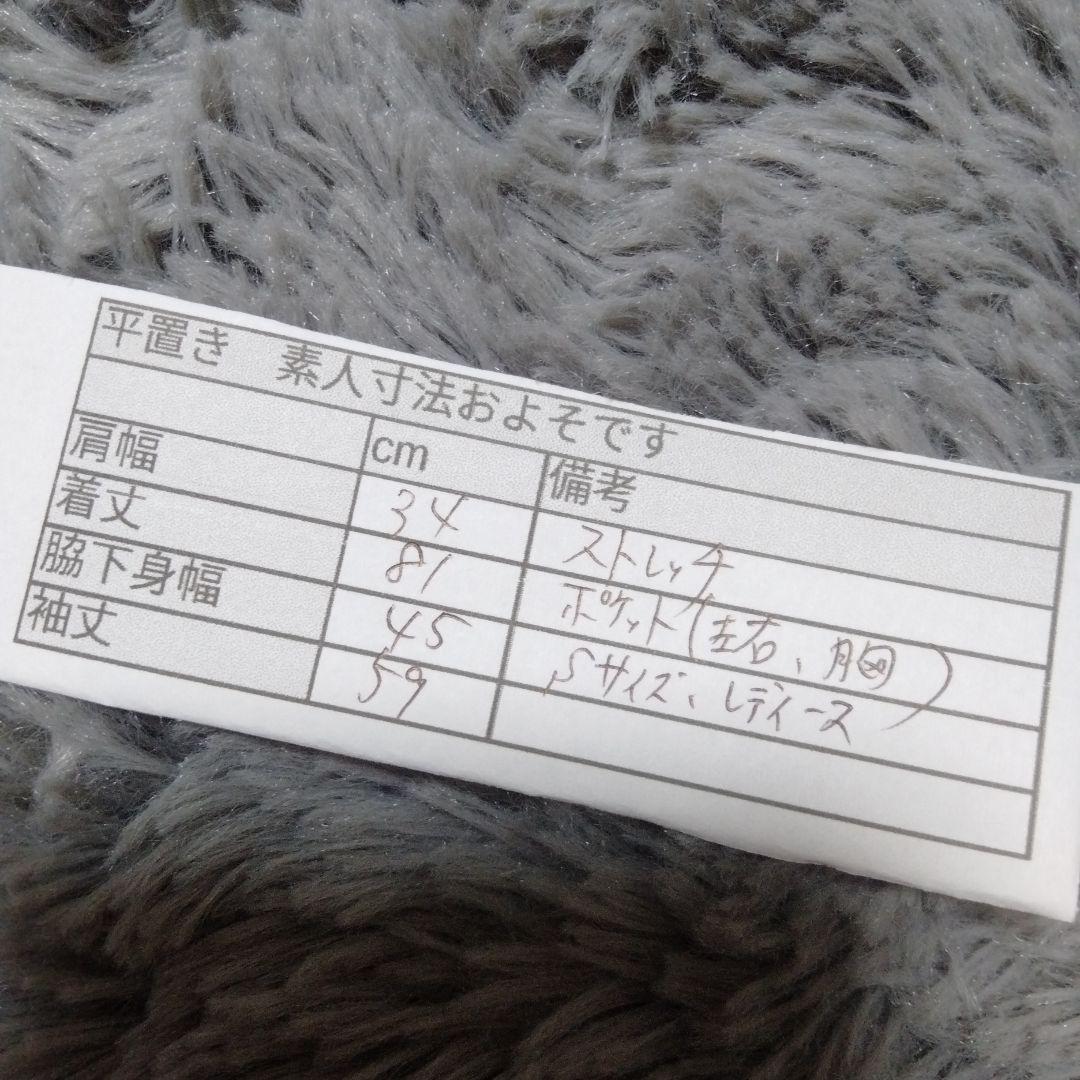 平置き 素人寸法およそです
cm 備考
肩幅 34 ストレッチ
着丈 81 ポケット(左右、胸)
脇下身幅 45 Sサイズ、レディース
袖丈 59